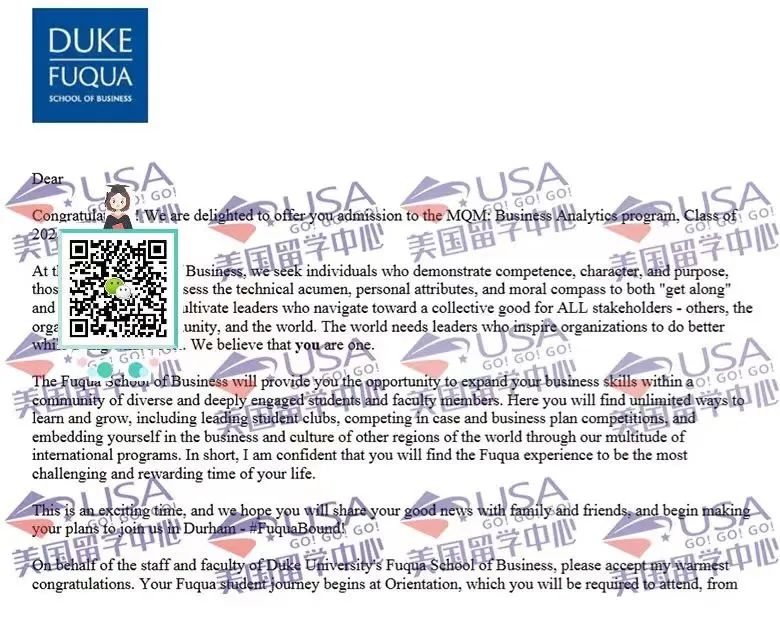 DUKE
FUQUA
SCHOOL OF BUSINESS
Dear
USA
GO! GO! GO!
美国留学中心
Congratula ! We are delighted to offer you admission to the MQM: Business Analytics program, Class of
202
At t Business, we seek individuals who demonstrate competence, character, and purpose,
thos sess the technical acumen, personal attributes, and moral compass to both "get along"
and ultivate leaders who navigate toward a collective good for ALL stakeholders - others, the
orga unity, and the world. The world needs leaders who inspire organizations to do better
whi . We believe that you are one.
The Fuqua School of Business will provide you the opportunity to expand your business skills within a
community of diverse and deeply engaged students and faculty members. Here you will find unlimited ways to
learn and grow, including leading student clubs, competing in case and business plan competitions, and
embedding yourself in the business and culture of other regions of the world through our multitude of
international programs. In short, I am confident that you will find the Fuqua experience to be the most
challenging and rewarding time of your life.
This is an exciting time, and we hope you will share your good news with family and friends, and begin making
your plans to join us in Durham - #FuquaBound!
On behalf of the staff and faculty of Duke University's Fuqua School of Business, please accept my warmest
congratulations. Your Fuqua student journey begins at Orientation, which you will be required to attend, from